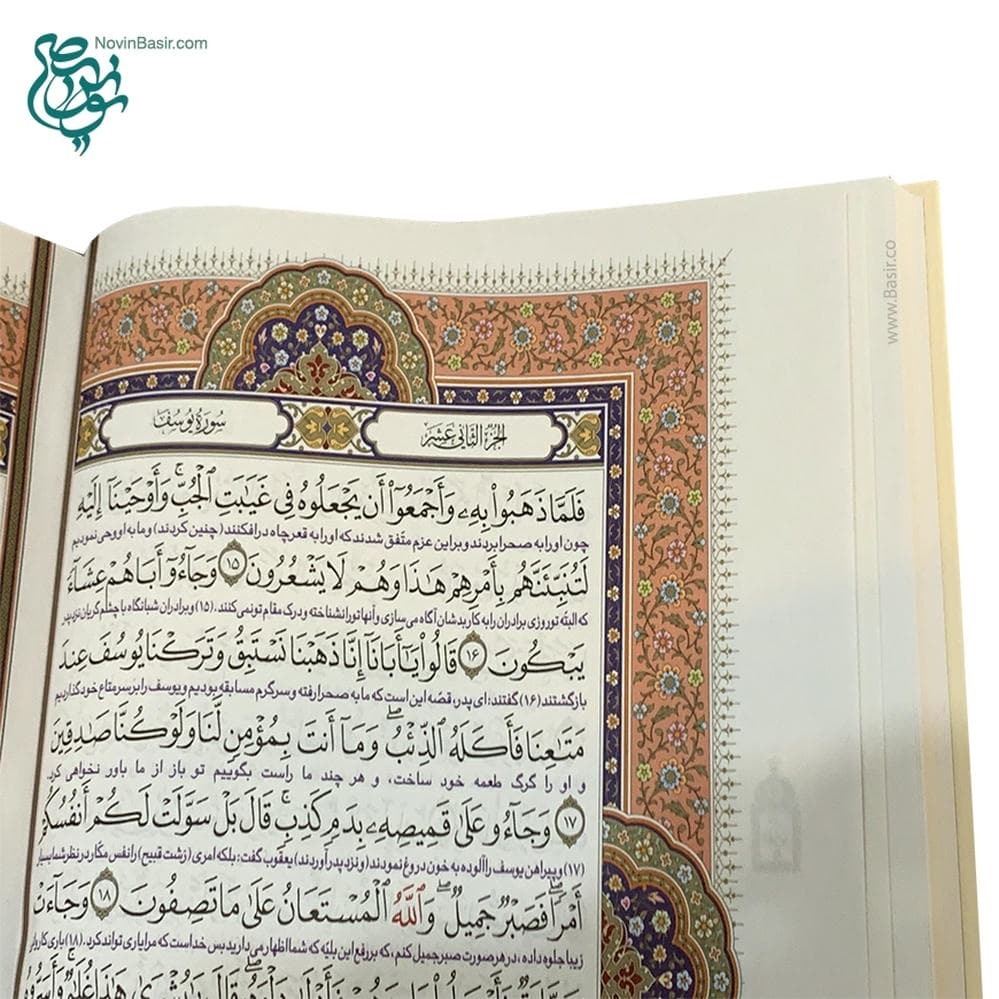 NovinBasir.com
www.Basir.co
سُورَةُ يُوسُف
الجُزءُ الثّانی عَشَر
فَلَمَّا ذَهَبُوا۟ بِهِۦ وَأَجْمَعُوٓا۟ أَن يَجْعَلُوهُ فِى غَيَـٰبَتِ ٱلْجُبِّ ۚ وَأَوْحَيْنَآ إِلَيْهِ
چون او را به صحرا بردند و بر این عزم متّفق شدند که او را به قعر چاه درافکنند (چنین کردند) و ما به او وحی نمودیم
لَتُنَبِّئَنَّهُم بِأَمْرِهِمْ هَـٰذَا وَهُمْ لَا يَشْعُرُونَ ۱۵ وَجَآءُوٓ أَبَاهُمْ عِشَآءً
که البتّه تو روزی برادران را به کار بدشان آگاه می‌سازی و آنها تو را نشناخته و درک مقام تو نمی‌کنند. (۱۵) و برادران شبانگاه با چشم گریان نزد پدر
يَبْكُونَ ۱۶ قَالُوا۟ يَـٰٓأَبَانَآ إِنَّا ذَهَبْنَا نَسْتَبِقُ وَتَرَكْنَا يُوسُفَ عِندَ
بازگشتند (۱۶) گفتند: ای پدر، قصّه این است که ما به صحرا رفته و سرگرم مسابقه بودیم و یوسف را بر سر متاع خود گذاردیم
مَتَـٰعِنَا فَأَكَلَهُ ٱلذِّئْبُ ۖ وَمَآ أَنتَ بِمُؤْمِنٍ لَّنَا وَلَوْ كُنَّا صَـٰدِقِينَ
و او را گرگ طعمه خود ساخت، و هر چند ما راست بگوییم تو باز از ما باور نخواهی کرد.
۱۷ وَجَآءُو عَلَىٰ قَمِيصِهِۦ بِدَمٍ كَذِبٍ ۚ قَالَ بَلْ سَوَّلَتْ لَكُمْ أَنفُسُكُمْ
(۱۷) و پیراهن یوسف را آلوده به خون دروغ نمودند (و نزد پدر آوردند) یعقوب گفت: بلکه امری (زشت قبیح) را نفس مکّار در نظر شما بسیار
أَمْرًا ۖ فَصَبْرٌ جَمِيلٌ ۖ وَٱللَّهُ ٱلْمُسْتَعَانُ عَلَىٰ مَا تَصِفُونَ ۱۸ وَجَآءَتْ
زیبا جلوه داده، در هر صورت صبر جمیل کنم، که بر رفع این بلیّه که شما اظهار می‌دارید بس خداست که مرا یاری تواند کرد. (۱۸) باری کاروانی
قَالَ يَـٰبُشْرَىٰ هَـٰذَا غُلَـٰمٌ ۚ وَأَسَرُّوهُ